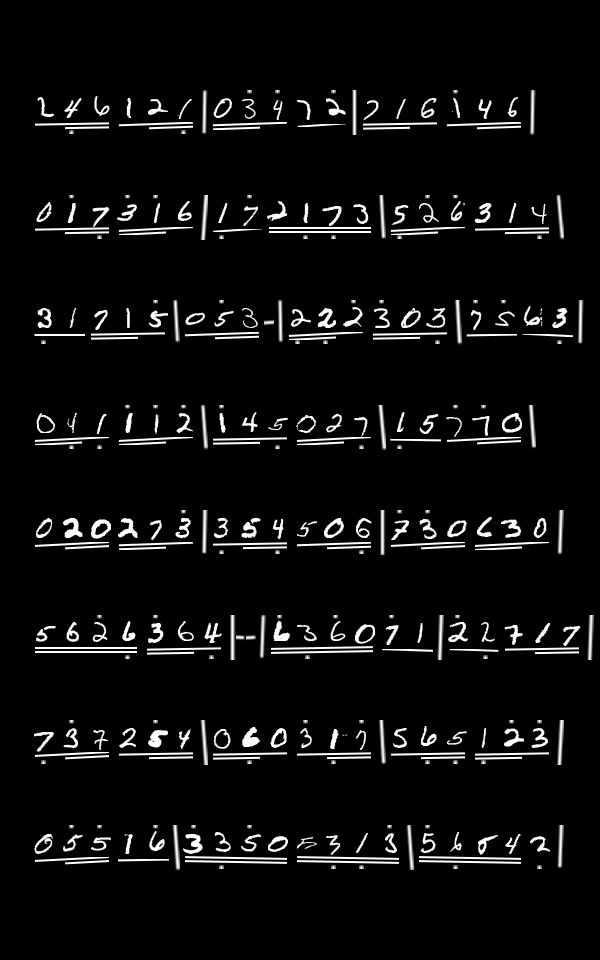 246121|03472|216146
017316|172173|526314
31715|053-|222303|75613
041112|145027|15770
020273|354506|730630
5626364|--|636071|227177
737254|060317|565123
05516|33505313|56542